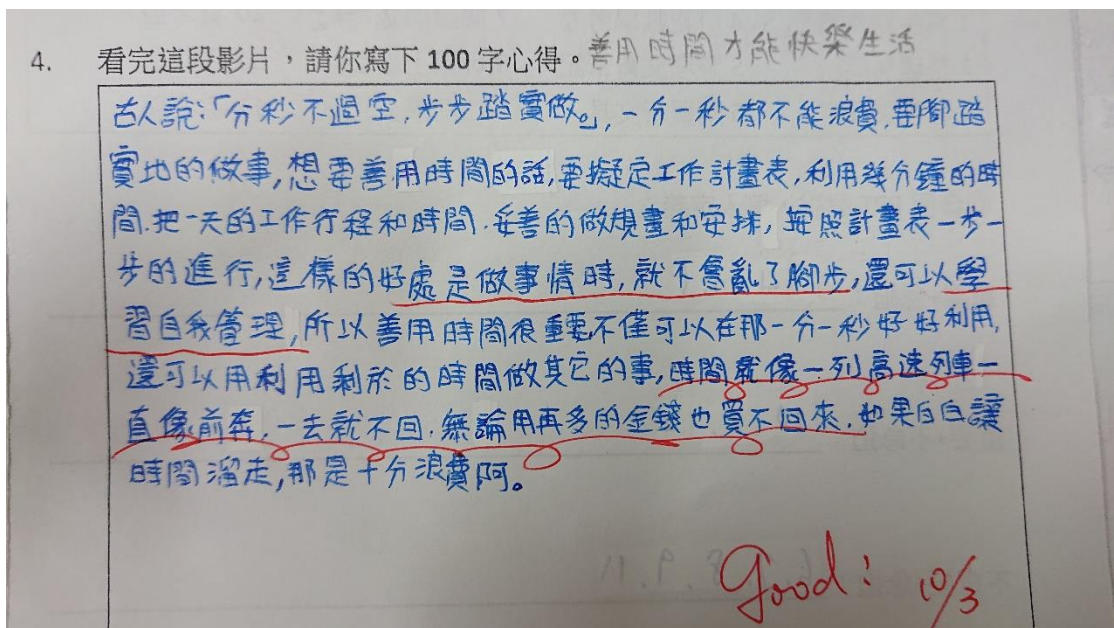 4. 看完這段影片，請你寫下 100 字心得。善用時間才能快樂生活
古人說:「分秒不過空,步步踏實做。」,一分一秒都不能浪費,要腳踏
實地的做事,想要善用時間的話,要擬定工作計畫表,利用幾分鐘的時
間.把一天的工作行程和時間.妥善的做規畫和安排,按照計畫表一步一
步的進行,這樣的好處是做事情時,就不會亂了腳步,還可以學
習自我管理,所以善用時間很重要不僅可以在那一分一秒好好利用,
還可以用利用剩於的時間做其它的事,時間就像一列高速列車一
直像前奔,一去就不回.無論用再多的金錢也買不回來.如果白白讓
時間溜走,那是十分浪費阿。
Good! 10/3